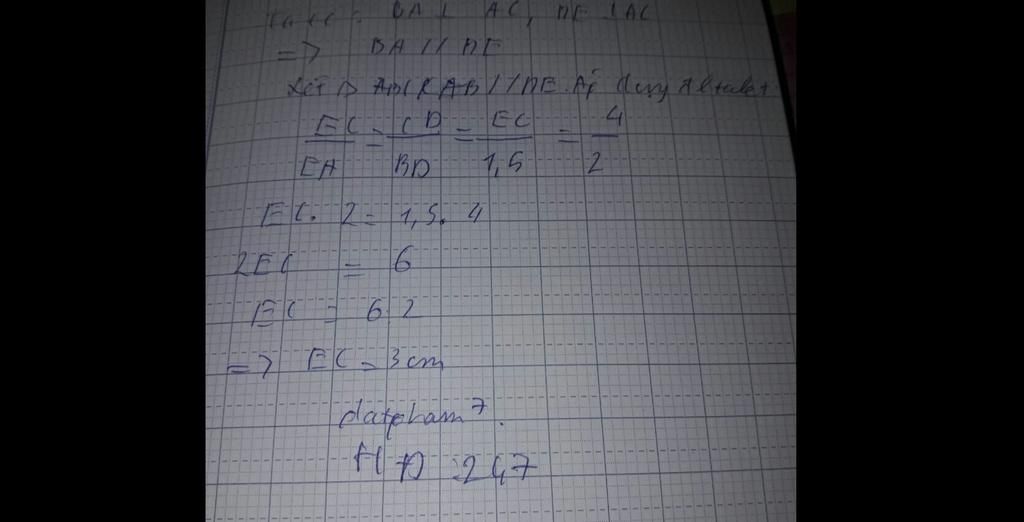 BA ⊥ AC, DE ⊥ AC
=> BA // DE
Xét Δ ABC AB // DE. Áp dụng
EC/EA = CD/BD = EC/1,5 = 4/2
EC. 2 = 1,5. 4
2EC = 6
EC = 6:2
=> EC = 3cm
datpham7.
HD 247